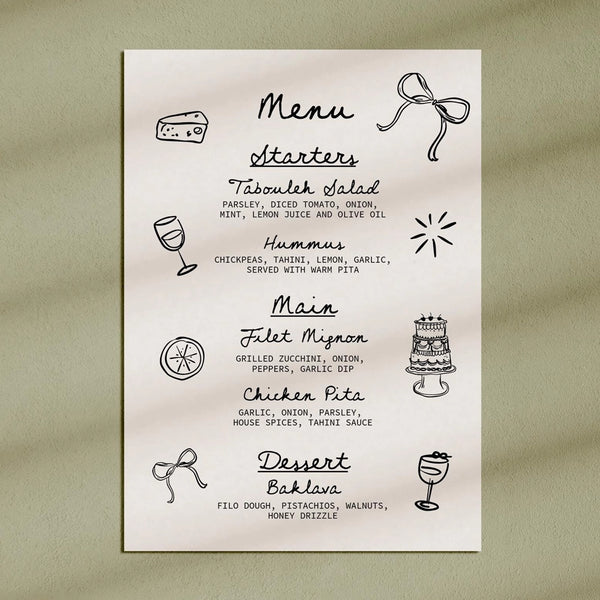 Menu
Starters
Tabouleh Salad
PARSLEY, DICED TOMATO, ONION,
MINT, LEMON JUICE AND OLIVE OIL
Hummus
CHICKPEAS, TAHINI, LEMON, GARLIC,
SERVED WITH WARM PITA
Main
Filet Mignon
GRILLED ZUCCHINI, ONION,
PEPPERS, GARLIC DIP
Chicken Pita
GARLIC, ONION, PARSLEY,
HOUSE SPICES, TAHINI SAUCE
Dessert
Baklava
FILO DOUGH, PISTACHIOS, WALNUTS,
HONEY DRIZZLE